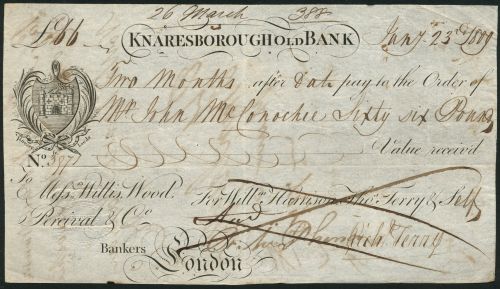 26 March 388
£66 KNARESBOROUGH OLD BANK Jany 23d 1809
Two Months after Date pay to the Order of
Mr John McConochie Sixty six Pounds
No. 397 Value receiv'd
To Messrs Willis, Wood, For Willm Harrison, Thos Terry & Self
Percival & Co
Bankers Richd Terry
London